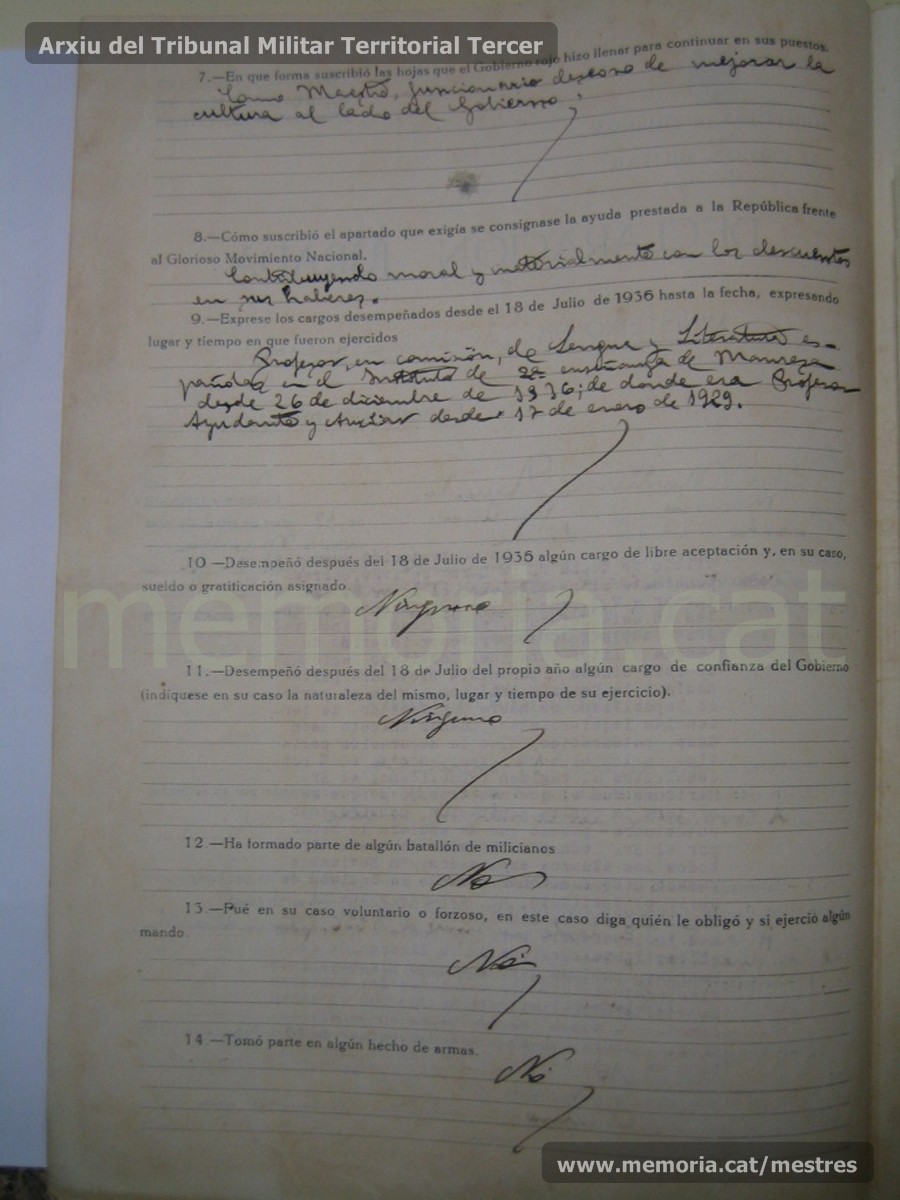 Arxiu del Tribunal Militar Territorial Tercer
7.—En que forma suscribió las hojas que el Gobierno rojo hizo llenar para continuar en sus puestos.
Como Maestro, funcionario deseoso de mejorar la
cultura al lado del Gobierno.
8.—Cómo suscribió el apartado que exigía se consignase la ayuda prestada a la República frente
al Glorioso Movimiento Nacional.
Contribuyendo moral y materialmente con los descuentos
en sus haberes.
9.—Exprese los cargos desempeñados desde el 18 de Julio de 1936 hasta la fecha, expresando
lugar y tiempo en que fueron ejercidos
Profesor, en comisión, de Lengua y Literatura es-
pañolas en el Instituto de 2ª enseñanza de Manresa
desde 26 de diciembre de 1936; de donde era Profesor
Ayudante y Auxiliar desde 17 de enero de 1929.
10 —Desempeñó después del 18 de Julio de 1936 algún cargo de libre aceptación y, en su caso,
sueldo o gratificación asignado.
Ninguno
memoria.cat
11.—Desempeñó después del 18 de Julio del propio año algún cargo de confianza del Gobierno
(indíquese en su caso la naturaleza del mismo, lugar y tiempo de su ejercicio).
Ninguno
12.—Ha formado parte de algún batallón de milicianos
No
13.—Fué en su caso voluntario o forzoso, en este caso diga quién le obligó y si ejerció algún
mando.
No
14.—Tomó parte en algún hecho de armas.
No
www.memoria.cat/mestres